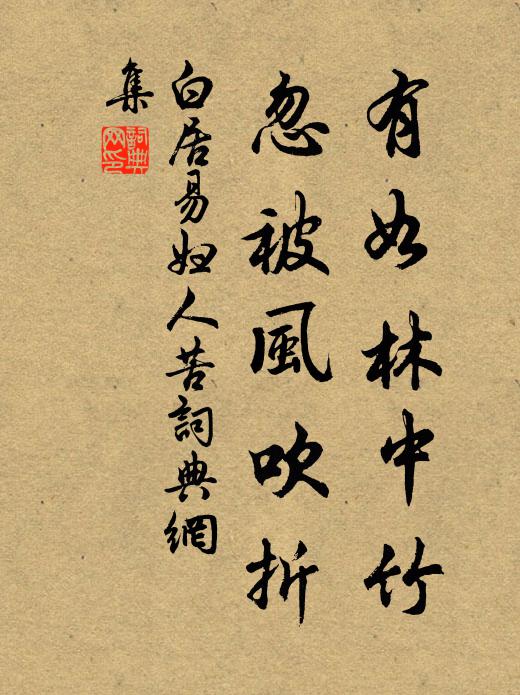 有如林中竹
忽被風吹折
白居易婦人苦詞典網
集
詞典
网印